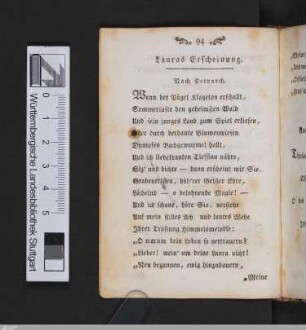 Württembergische Landesbibliothek Stuttgart
94
Lauras Erscheinung.
Nach Petrarch.
Wenn der Vögel Klageton erschallt,
Sommerlüfte den geheimsten Wald
Und sein junges Laub zum Spiel erlesen,
Oder durch bethaute Blumenwiesen
Dumpfes Bachgemurmel hallt,
Und ich liebestrunken Tiefsinn nähre,
Sitz und dichte — dann erscheint mir Sie.
Grabentrissen, höh'rer Geister Ehre,
Lächelnd — o beseligende Magie!
Und ich schaue, höre Sie, verstehe
Auf mein stilles Ach und lautes Wehe
Ihrer Tröstung Himmelsmelodie:
„O warum dein Leben so vertrauern?
„Lieber! wein' um deine Laura nicht!
„Neu begonnen, ewig hinzudauern,
„Meine